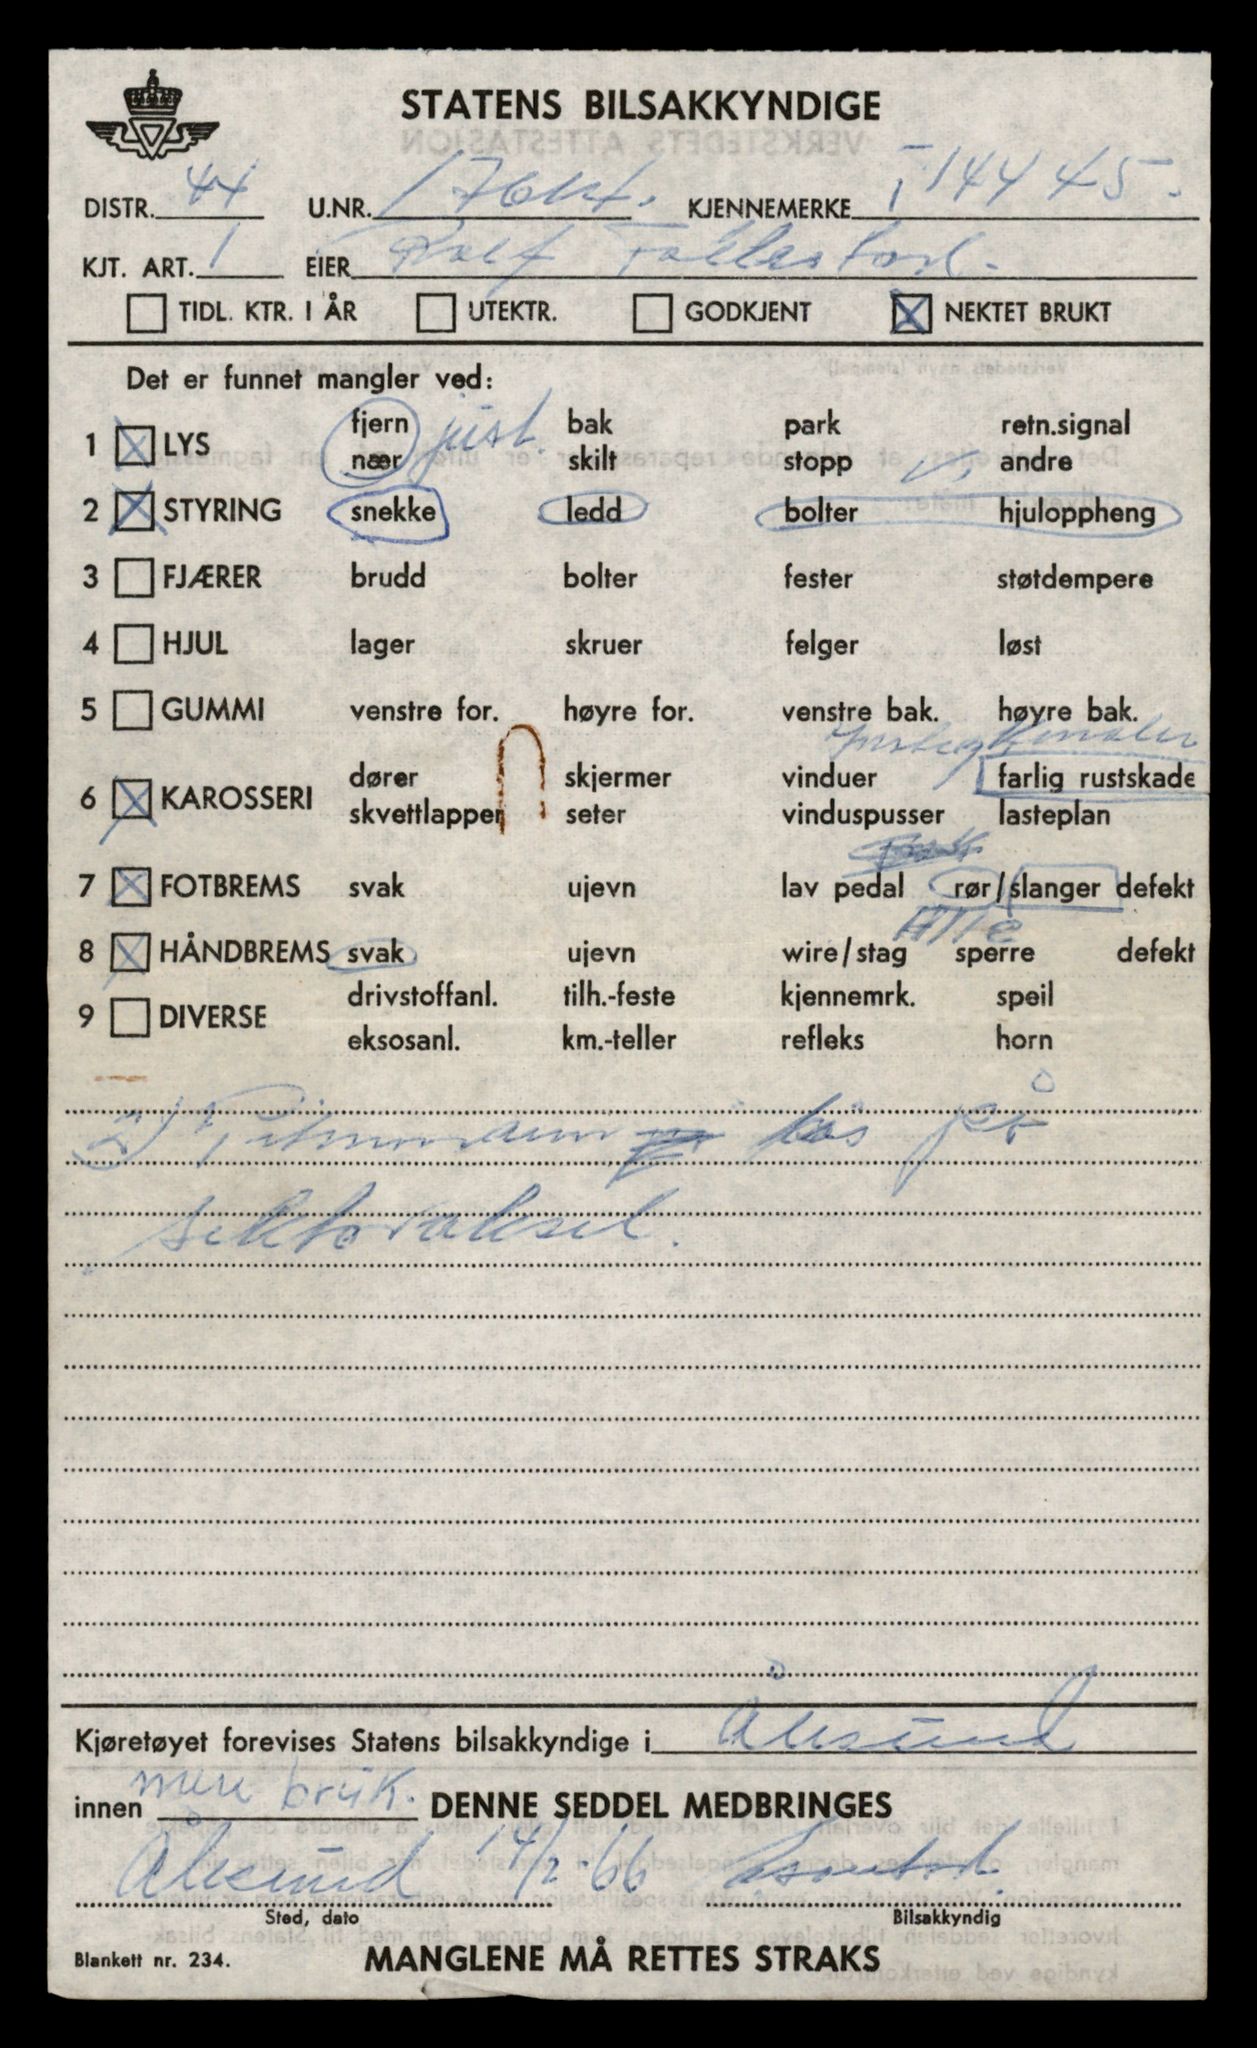 STATENS BILSAKKYNDIGE
DISTR. 44 U.NR. KJENNEMERKE T 14445.
KJT. ART. 1 EIER Rolf
TIDL. KTR. I ÅR UTEKTR. GODKJENT NEKTET BRUKT
Det er funnet mangler ved:
1 LYS fjern just. bak park retn.signal
nær skilt stopp andre
2 STYRING snekke ledd bolter hjuloppheng
3 FJÆRER brudd bolter fester støtdempere
4 HJUL lager skruer felger løst
5 GUMMI venstre for. høyre for. venstre bak. høyre bak.
6 KAROSSERI dører skjermer vinduer farlig rustskade
skvettlapper seter vinduspusser lasteplan
7 FOTBREMS svak ujevn lav pedal rør/slanger defekt
Alle
8 HÅNDBREMS svak ujevn wire/stag sperre defekt
9 DIVERSE drivstoffanl. tilh.-feste kjennemrk. speil
eksosanl. km.-teller refleks horn
2) løs på
sektoraksel.
Kjøretøyet forevises Statens bilsakkyndige i Ålesund
innen mere bruk. DENNE SEDDEL MEDBRINGES
Ålesund 14/2-66
Sted, dato Bilsakkyndig
Blankett nr. 234. MANGLENE MÅ RETTES STRAKS